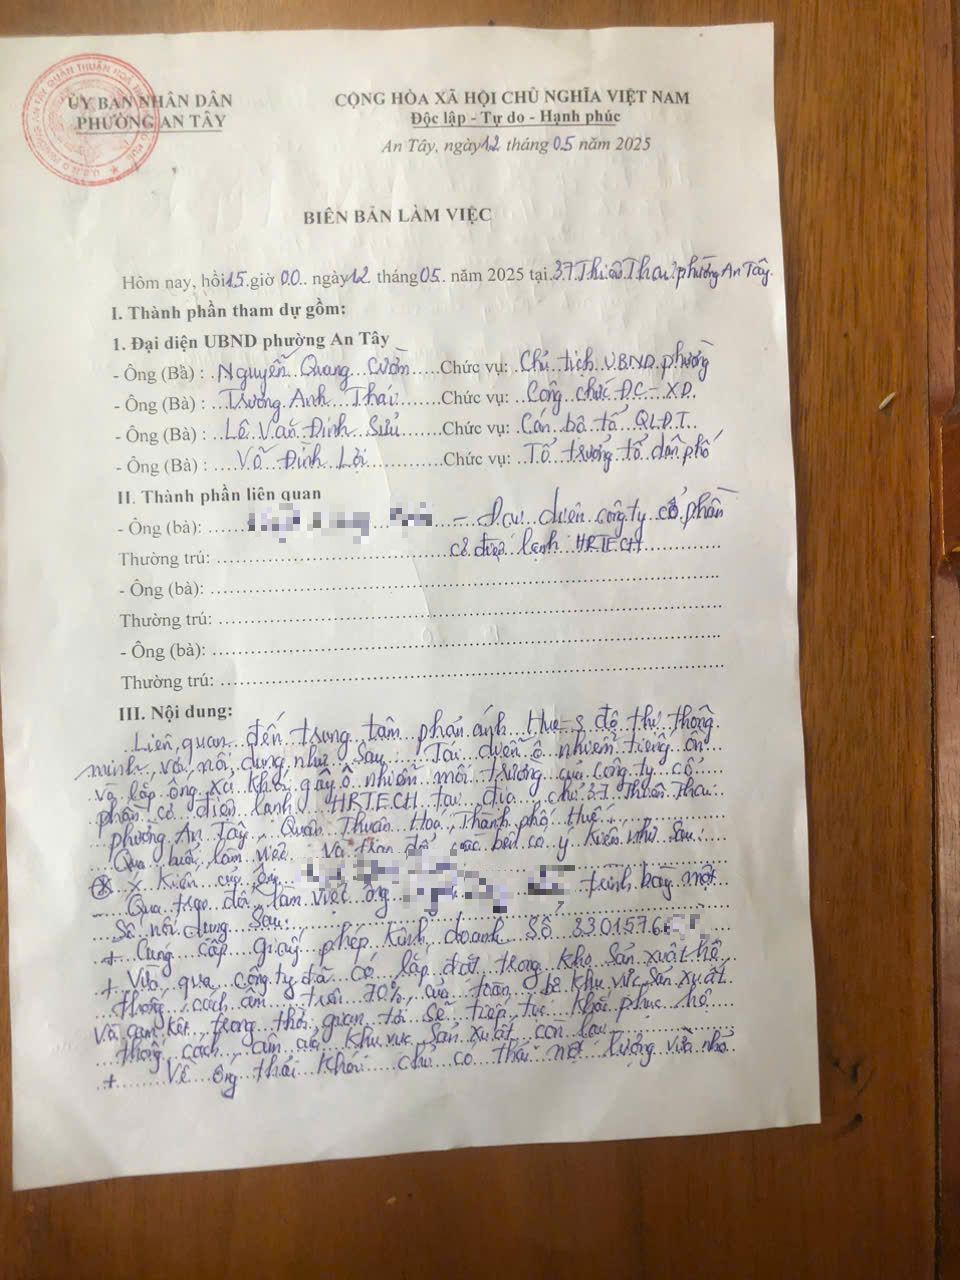 ỦY BAN NHÂN DÂN
PHƯỜNG AN TÂY
CỘNG HÒA XÃ HỘI CHỦ NGHĨA VIỆT NAM
Độc lập - Tự do - Hạnh phúc
An Tây, ngày 12 tháng 05 năm 2025
BIÊN BẢN LÀM VIỆC
Hôm nay, hồi 15 giờ 00 ngày 12 tháng 05 năm 2025 tại 37 Thiên Thai phường An Tây
I. Thành phần tham dự gồm:
1. Đại diện UBND phường An Tây
- Ông (Bà) : Nguyễn Quang Cườn Chức vụ: Chủ tịch UBND phường
- Ông (Bà) : Trương Anh Thái Chức vụ: Công chức ĐC-XD
- Ông (Bà) : Lê Văn Đình Sửu Chức vụ: Cán bộ tổ QLĐT
- Ông (Bà) : Võ Đình Lợi Chức vụ: Tổ trưởng tổ dân phố
II. Thành phần liên quan
- Ông (bà): - Đại diện công ty cổ phần
Thường trú: cơ điện lạnh HRTECH
- Ông (bà):
Thường trú:
- Ông (bà):
Thường trú:
III. Nội dung:
Liên quan đến trung tâm phản ánh Hue-S đô thị thông
minh, với nội dung như sau: Tái diễn ô nhiễm tiếng ồn
và lắp ống xả khói gây ô nhiễm môi trường của công ty cổ
phần cơ điện lạnh HRTECH tại địa chỉ 37 Thiên Thai
phường An Tây, Quận Thuận Hoá, Thành phố Huế.
Qua buổi làm việc và trao đổi các bên có ý kiến như sau:
* Ý kiến của ông
- Qua trao đổi, làm việc ông trình bày một
số nội dung sau:
+ Cung cấp giấy phép kinh doanh số 3301576
+ Vừa qua công ty đã có lắp đặt trong kho sản xuất hệ
thống cách âm trên 70% của toàn bộ khu vực sản xuất
và cam kết trong thời gian tới sẽ tiếp tục khắc phục hệ
thống cách âm của khu vực sản xuất còn lại
+ Về ống thải khói chỉ có thải một lượng vừa nhỏ